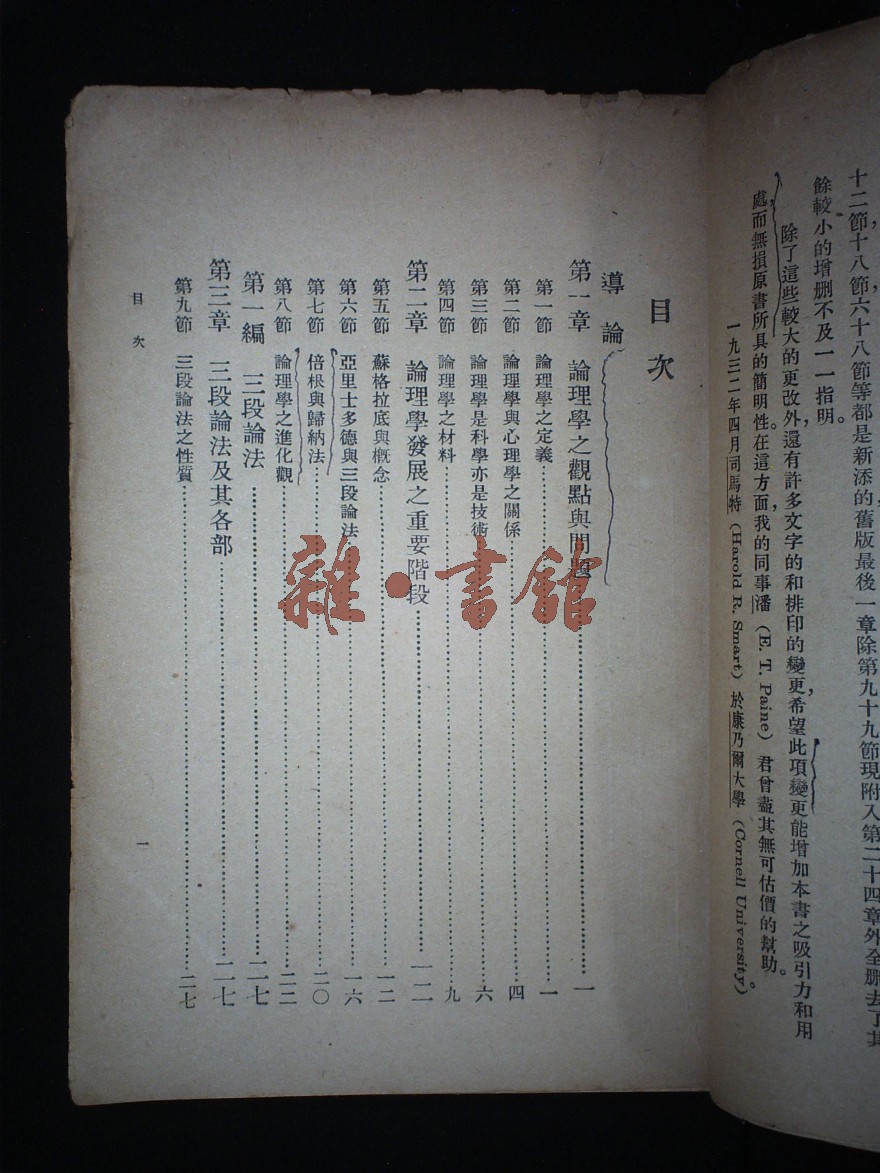 十二節十八節六十八節等都是新添的舊版最後一章除第九十九節現附入第二十四章外全删去了其
餘較小的增删不及一一指明。
除了這些較大的更改外,還有許多文字的和排印的變更,希望此項變更能增加本書之吸引力和用
處而無損原書所具的簡明性。在這方面,我的同事潘(E. T. Paine)君曾盡其無可估價的幫助。
一九三二年四月司馬特(Harold R. Smart)於康乃爾大學(Cornell University)
目次
導論
第一章 論理學之觀點與問題……一
第一節 論理學之定義……一
第二節 論理學與心理學之關係……四
第三節 論理學是科學亦是技術……六
第四節 論理學之材料……九
第二章 論理學發展之重要階段……一二
第五節 蘇格拉底與概念……一二
第六節 亞里士多德與三段論法……一六
第七節 倍根與歸納法……二〇
第八節 論理學之進化觀……二二
第一編 三段論法……二七
第三章 三段論法及其各部……二七
第九節 三段論法之性質……二七
目次
一
雜·書館